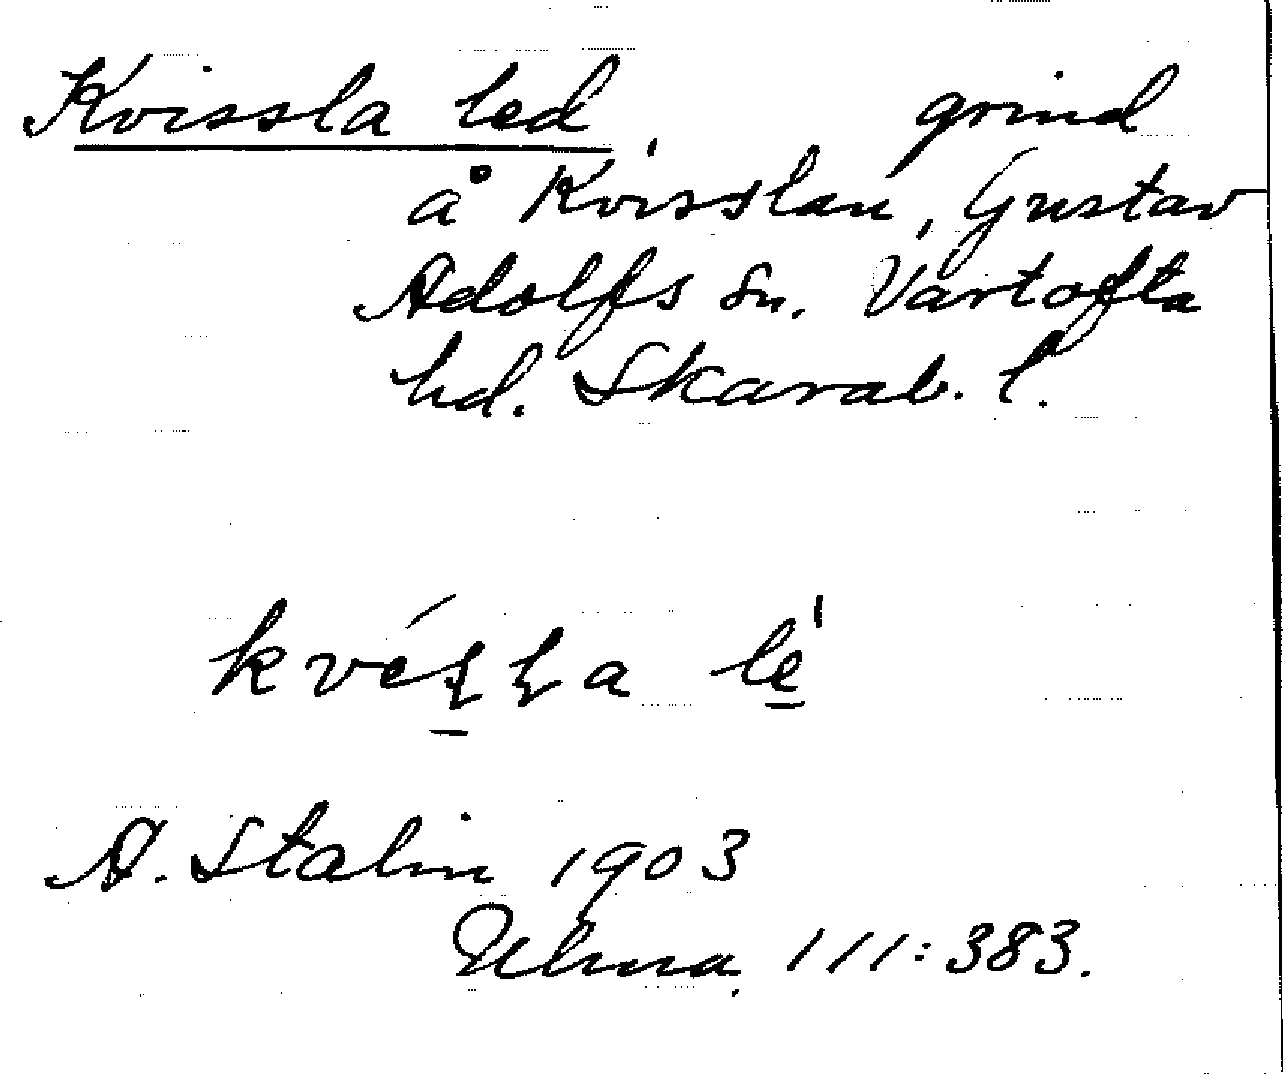 Kvissla led, grind
å Kvisslan, Gustav
Adolfs sn. Vartofta
hd. Skarab. l.
A. Stalin 1903
Ulma, 111:383.